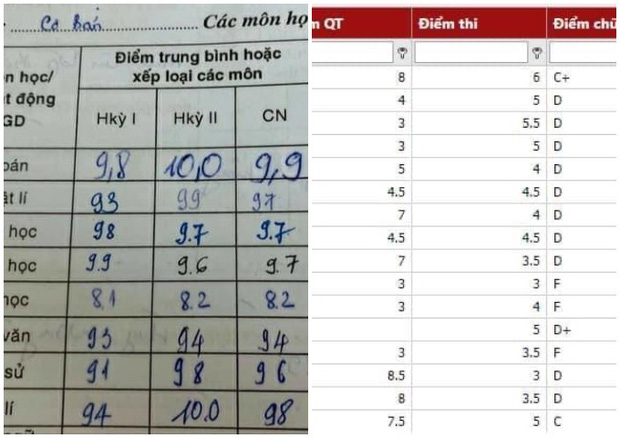 Cơ Bản Các môn họ
n học/
t động
GD
Điểm trung bình hoặc
xếp loại các môn
Hkỳ I Hkỳ II CN
oán 9,8 10,0 9,9
ật lí 93 99 97
học 98 9.7 9.7
học 9.9 9.6 9.7
học 8.1 8.2 8.2
văn 93 94 94
sử 91 98 96
lí 94 10.0 98
n QT Điểm thi Điểm chữ
8 6 C+
4 5 D
3 5.5 D
3 5 D
5 4 D
4.5 4.5 D
7 4 D
4.5 4.5 D
7 3.5 D
3 3 F
3 4 F
5 D+
3 3.5 F
8.5 3 D
8 3.5 D
7.5 5 C